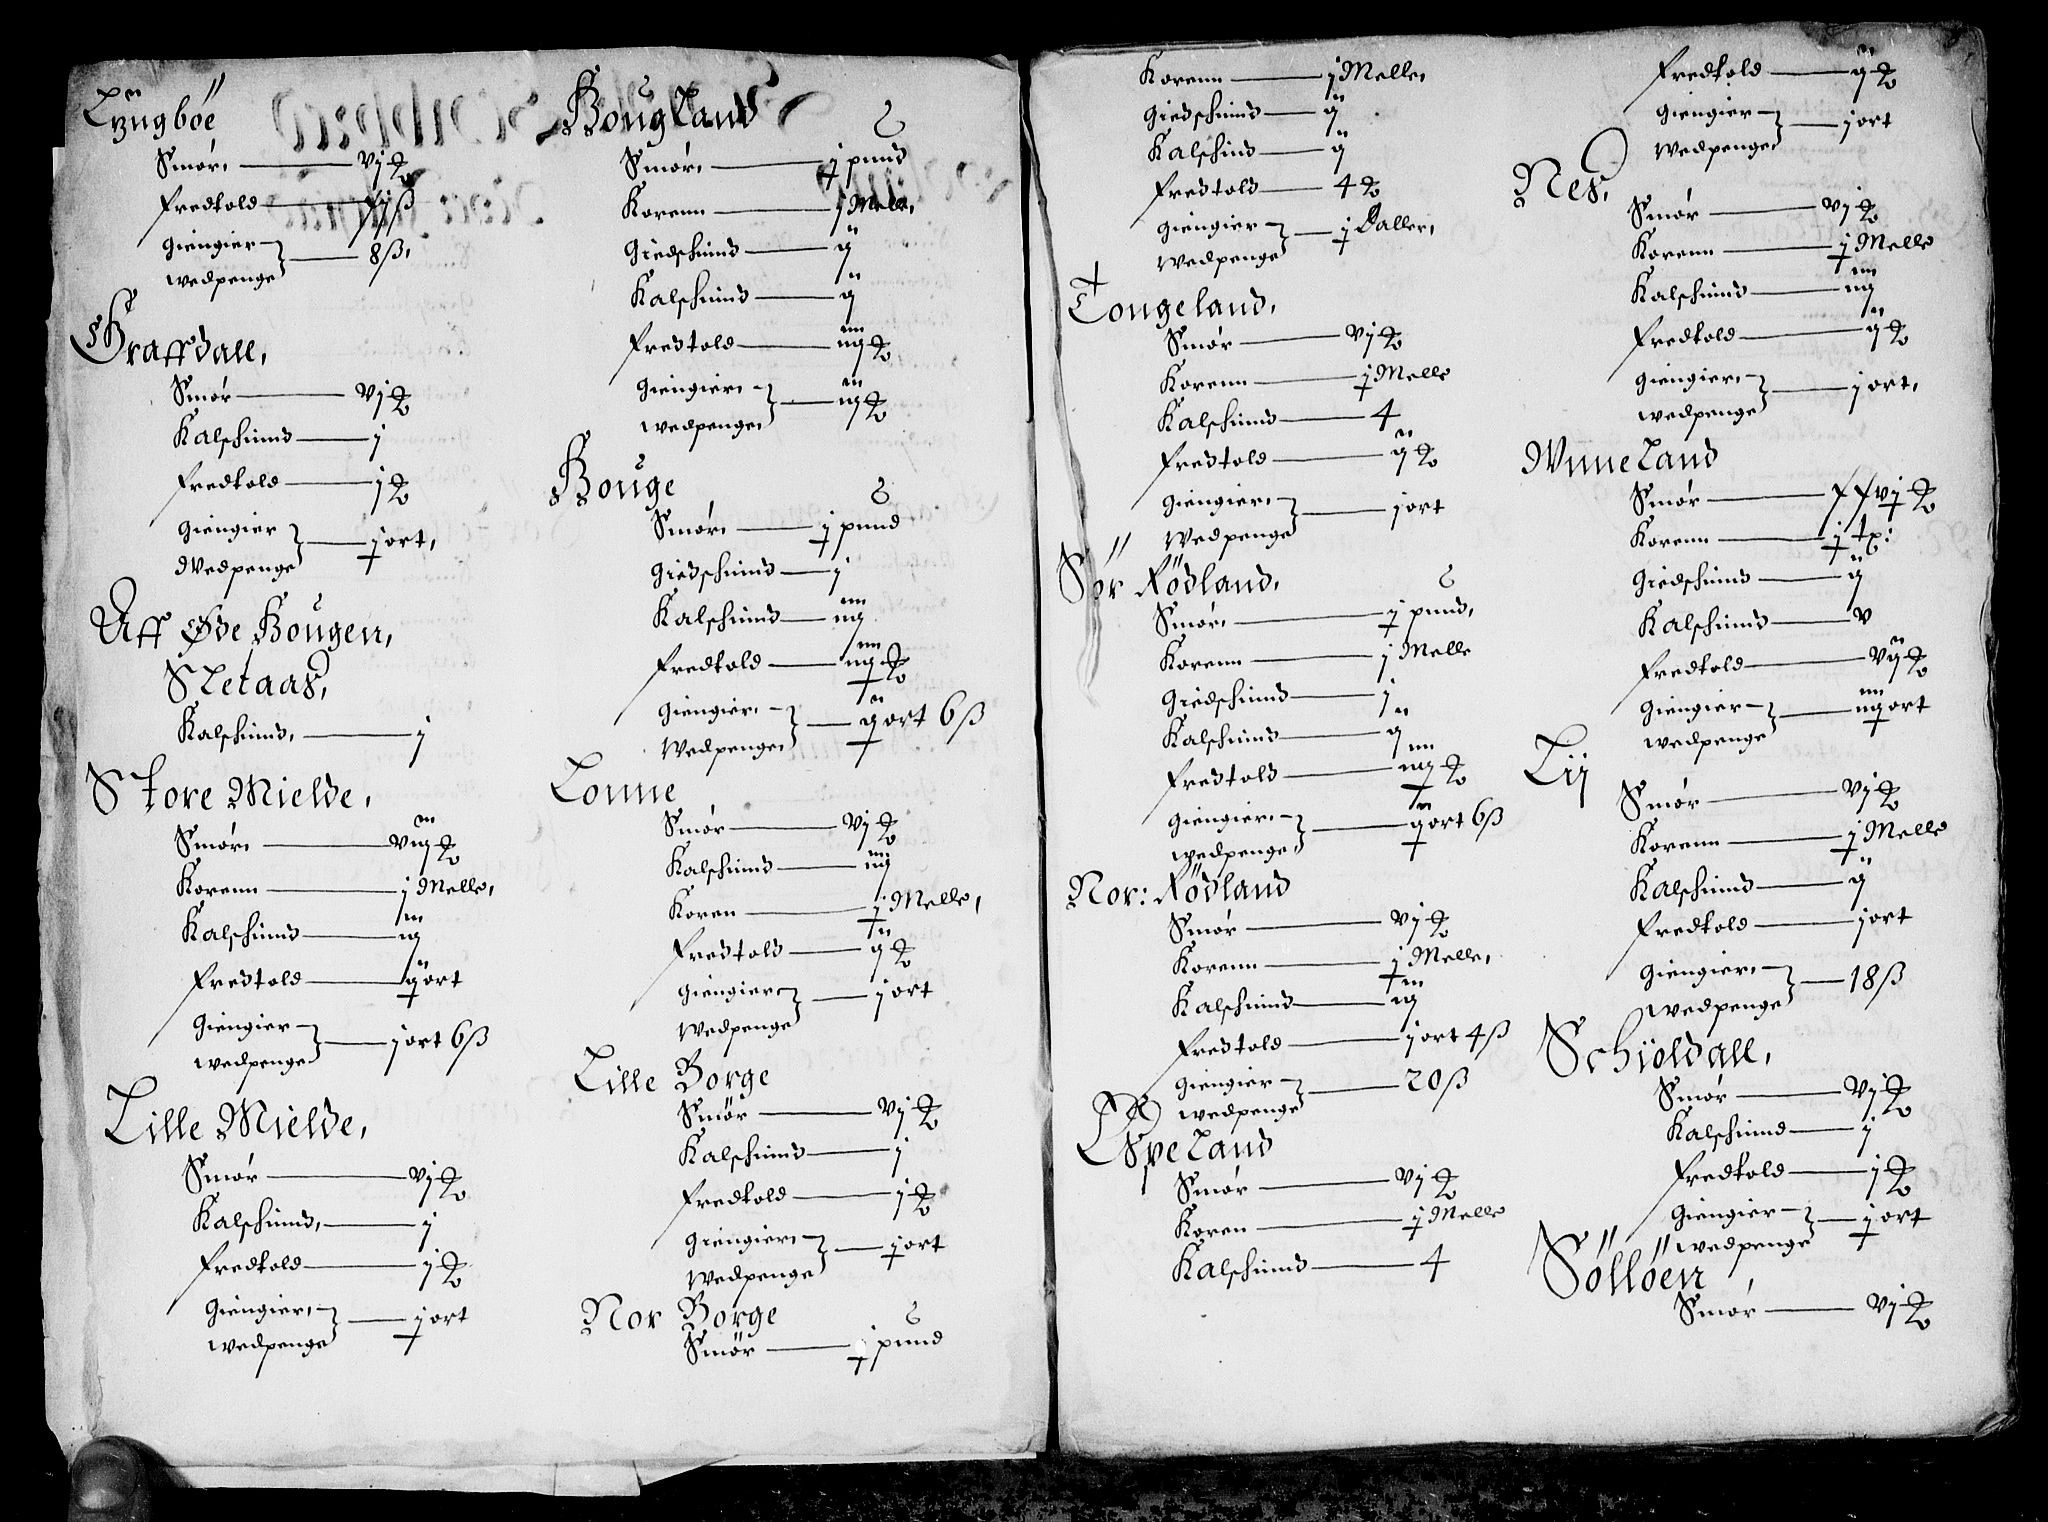 Lyngbøe
Smør, — vj ℔
Fredtold — xij ß
Giengier
wedpenge — 8 ß,
Graffdall,
Smør — vj ℔
Kalfskind — j
Fredtold — j ℔
Giengier
Wedpenge — j ort,
Aff Øde Bougen,
Sletaas,
Kalfskind, — j
Store Mielde,
Smør, — viij ℔
Korenn — j Melle,
Kalfskind — iij
Fredtold — ij ort
Giengier
wedpenge — j ort 6 ß
Lille Mielde,
Smør — vj ℔
Kalfskind, — j
Fredtold — j ℔
Giengier,
wedpenge — j ort
Bougland
Smør, — j pund
Korenn — j Melle,
Giedskind — ij
Kalfskind — ij
Fredtold — iiij ℔
Giengier,
wedpenge, — iij ℔
Bouge
Smør, — j pund
Giedskind — j
Kalfskind — iij
Fredtold — iiij ℔
Giengier,
Wedpenge, — ij ort 6 ß
Lonne
Smør — vj ℔
Kalfskind — iiij
Koren — j Melle,
Fredtold — ij ℔
Giengier
Wedpenge — j ort
Lille Borge
Smør — vj ℔
Kalfskind — j
Fredtold — j ℔
Giengier,
Wedpenge — j ort
Nor Borge
Smør — j pund
Korenn — j Melle,
Giedskind — ij
Kalfskind — ij
Fredtold — 4 ℔
Giengier
Wedpenge — j Daller,
Tongeland,
Smør — vj ℔
Korenn — j Melle
Kalfskind — 4
Fredtold — ij ℔
Giengier,
Wedpenge — j ort
Sør Rødland,
Smør, — j pund,
Korenn — j Melle
Giedskind — j
Kalfskind — ij
Fredtold — iiij ℔
Giengier,
wedpenge, — ij ort 6 ß
Nor: Rødland
Smør — vj ℔
Korenn — j Melle,
Kalfskind — iij
Fredtold — j ort 4 ß
Giengier
wedpenge — 20 ß
Espeland
Smør — vj ℔
Koren — j Melle
Kalfskind — 4
Fredtold — ij ℔
Giengier
wedpenge, — j ort
Nes,
Smør — vj ℔
Korenn — j Melle
Kalfskind — iiij
Fredtold — ij ℔
Giengier,
wedpenge — j ort,
Unneland
Smør — xxvj ℔
Korenn — j tp:
Giedskind — ij
Kalfskind — v
Fredtold — vij ℔
Giengier
wedpenge — iiij ort
Lij
Smør — vj ℔
Korenn — j Melle
Kalfskind — ij
Fredtold — j ort
Giengier,
wedpenge — 18 ß
Schioldall,
Smør — vj ℔
Kalfskind — j
Fredtold — j ℔
Giengier
wedpenge — j ort
Sølløen,
Smør — vj ℔